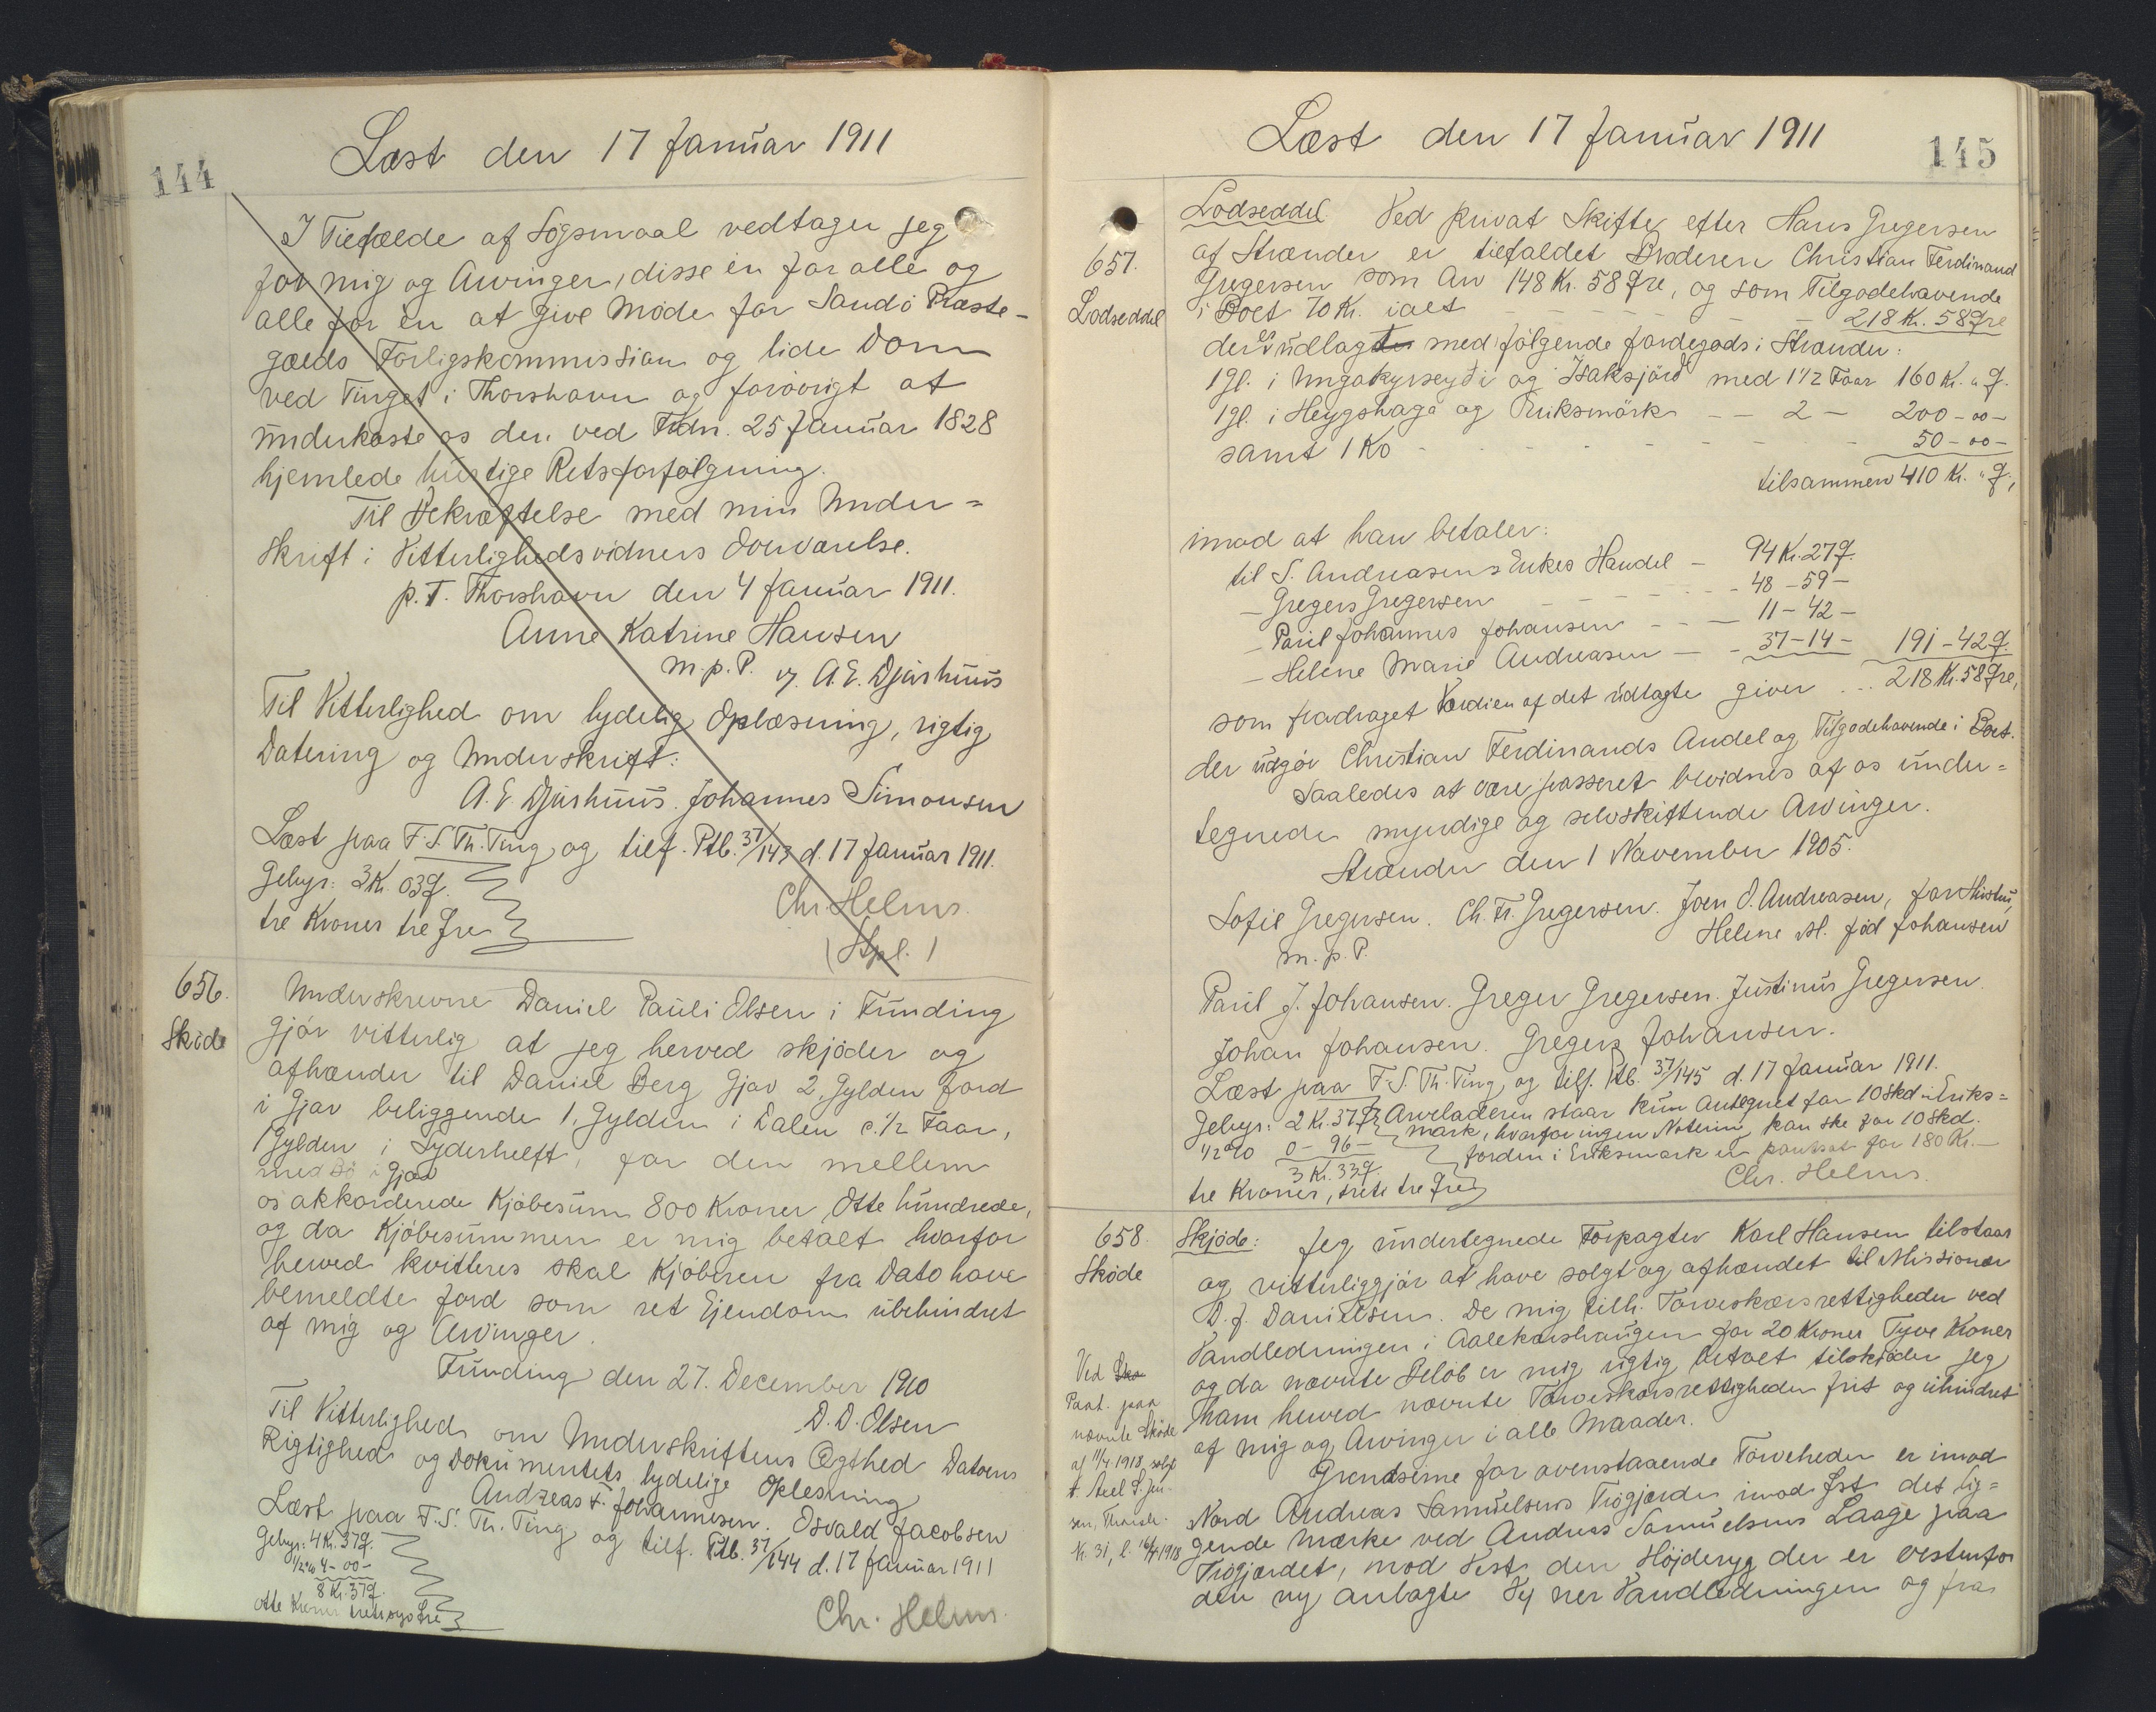 144
Læst den 17 Januar 1911
I Tilfælde af Søgsmaal vedtager jeg
for mig og Arvinger, disse en for alle og
alle for en at give Møde for Sandö Præste-
gælds Forligskommission og lide Dom
ved Tinget i Thorshavn og forövrigt at
underkaste os den ved Frdn. 25 Januar 1828
hjemlede hurtige Retsforfölgning.
Til Bekræftelse med min Under=
skrift i Vitterlighedsvidners Overværelse.
p.T. Thorshavn den 4 Januar 1911.
Anne Katrine Hansen
m.p.P. v. A.E. Djurhuus
Til Vitterlighed om lydelig Oplæsning, rigtig
Datering og Underskrift:
A.E. Djurhuus. Johannes Simonsen
Læst paa F.S. Th. Ting og tilf. Ptb. 37/143 d. 17 Januar 1911.
Gebyr: 3 Kr. 03 Ø.
tre Kroner tre Øre
Chr. Helms.
/Stpl./
656.
Sköde
Underskrevne Daniel Pauli Olsen i Funding
gjör vitterlig at jeg herved skjöder og
afhænder til Daniel Berg Gjov 2, Gylden Jord
i Gjov beliggende 1, Gylden i Dalen c. 1/2 Faar,
1 Gylden i Syderhelft, for den mellem
med Sö i Gjov
os akkorderede Kjöbesum 800 Kroner, Otte hundrede,
og da Kjöbesummen er mig betalt hvorfor
herved kvitteres skal Kjöberen fra Dato have
bemeldte Jord som ret Ejendom ubehindret
af mig og Arvinger.
Funding den 27. December 1910
D. D. Olsen
Til Vitterlighed om Underskriftens Ægthed Datoens
Rigtighed og Dokumentets lydelige Oplesning
Andreas F. Johannesen. Osvald Jacobsen
Læst paa F.S. Th. Ting og tilf. Ptb. 37/144 d. 17 Januar 1911
Gebyr: 4 Kr. 37 Ø.
1/2 % 4 - 00 -
8 Kr. 37 Ø.
otte Kroner tretisyv Øre
Chr. Helms.
Læst den 17 Januar 1911
145
657.
Lodseddel
Lodseddel Ved privat Skifte efter Hans Gregersen
af Strænder er tilfaldet Broderen Christian Ferdinand
Gregersen som Arv 148 Kr. 58 Øre, og som Tilgodehavende
i Boet 70 Kr. ialt - - - - - - 218 Kr. 58 Øre
der er udlagt med fölgende Jordegods i Strænder:
1 gl. i Ungakyrseyði og Isaksjörð med 1 1/2 Faar 160 Kr. " Ø.
1 gl. i Heygshaga og Eriksmörk - - 2 - 200 - 00 -
samt 1 Ko - - - - - - 50 - 00 -
tilsammen 410 Kr. " Ø.,
imod at han betaler:
til S. Andreasens Enkes Handel - 94 Kr. 27 Ø.
- Gregers Gregersen - - - - - 48 - 59 -
- Paul Johannes Johansen - - - 11 - 42 -
- Helene Marie Andreasen - - 37 - 14 - 191 - 42 Ø.
som fradraget Værdien af det udlagte giver ... 218 Kr. 58 Øre,
der udgör Christian Ferdinands Andel og Tilgodehavende i Boet.
Saaledes at være passeret bevidnes af os under=
tegnede myndige og selvskiftende Arvinger.
Strænder den 1 November 1905.
Sofie Gregersen. Ch. Fr. Gregersen. Joen O. Andreasen, for Hustru,
m.p.P. Helene M. föd Johansen
Paul J. Johansen. Greger Gregersen. Justinus Gregersen
Johan Johansen. Gregers Johansen.
Læst paa F.S. Th. Ting og tilf. Ptb. 37/145 d. 17 Januar 1911.
Gebyr: 2 Kr. 37 Ø. Arveladeren staar kun antegnet for 10 Skd i Eriks=
1/2 % 0 - 96 - mark, hvorfor ingen Notering kan ske for 10 Skd.
3 Kr. 33 Ø. Jorden i Eriksmark er pantsat for 180 Kr. -
tre Kroner, treti tre Øre Chr. Helms.
658.
Sköde
Skjöde: Jeg undertegnede Forpagter Karl Hansen tilstaar
og vitterliggjör at have solgt og afhændet til Missionær
D. J. Danielsen. De mig tilh. Torveskærsrettigheder ved
Vandledningen i Aalekærshaugen for 20 Kroner Tyve Kroner
og da nævnte Belöb er mig rigtig betalt tilskjöder jeg
ham herved nævnte Torveskærsrettigheder frit og uhindret
af mig og Arvinger i alle Maader.
Grendserne for ovenstaaende Torveheder er imod
Nord Andreas Samuelsens Trögjærde imod Øst det lig=
gende Mærke ved Andreas Samuelsens Laage paa
Trögjærdet, mod Vest den Höjderyg der er vestenfor
den ny anlagte Vej ner Vandledningen og fra
Ved Sko
Pant. paa
nævnte Sköde
af 11/4 1918, solgt
t. Axel S. Jen-
sen, Thorsh.
K. 31, l. 16/4 1918